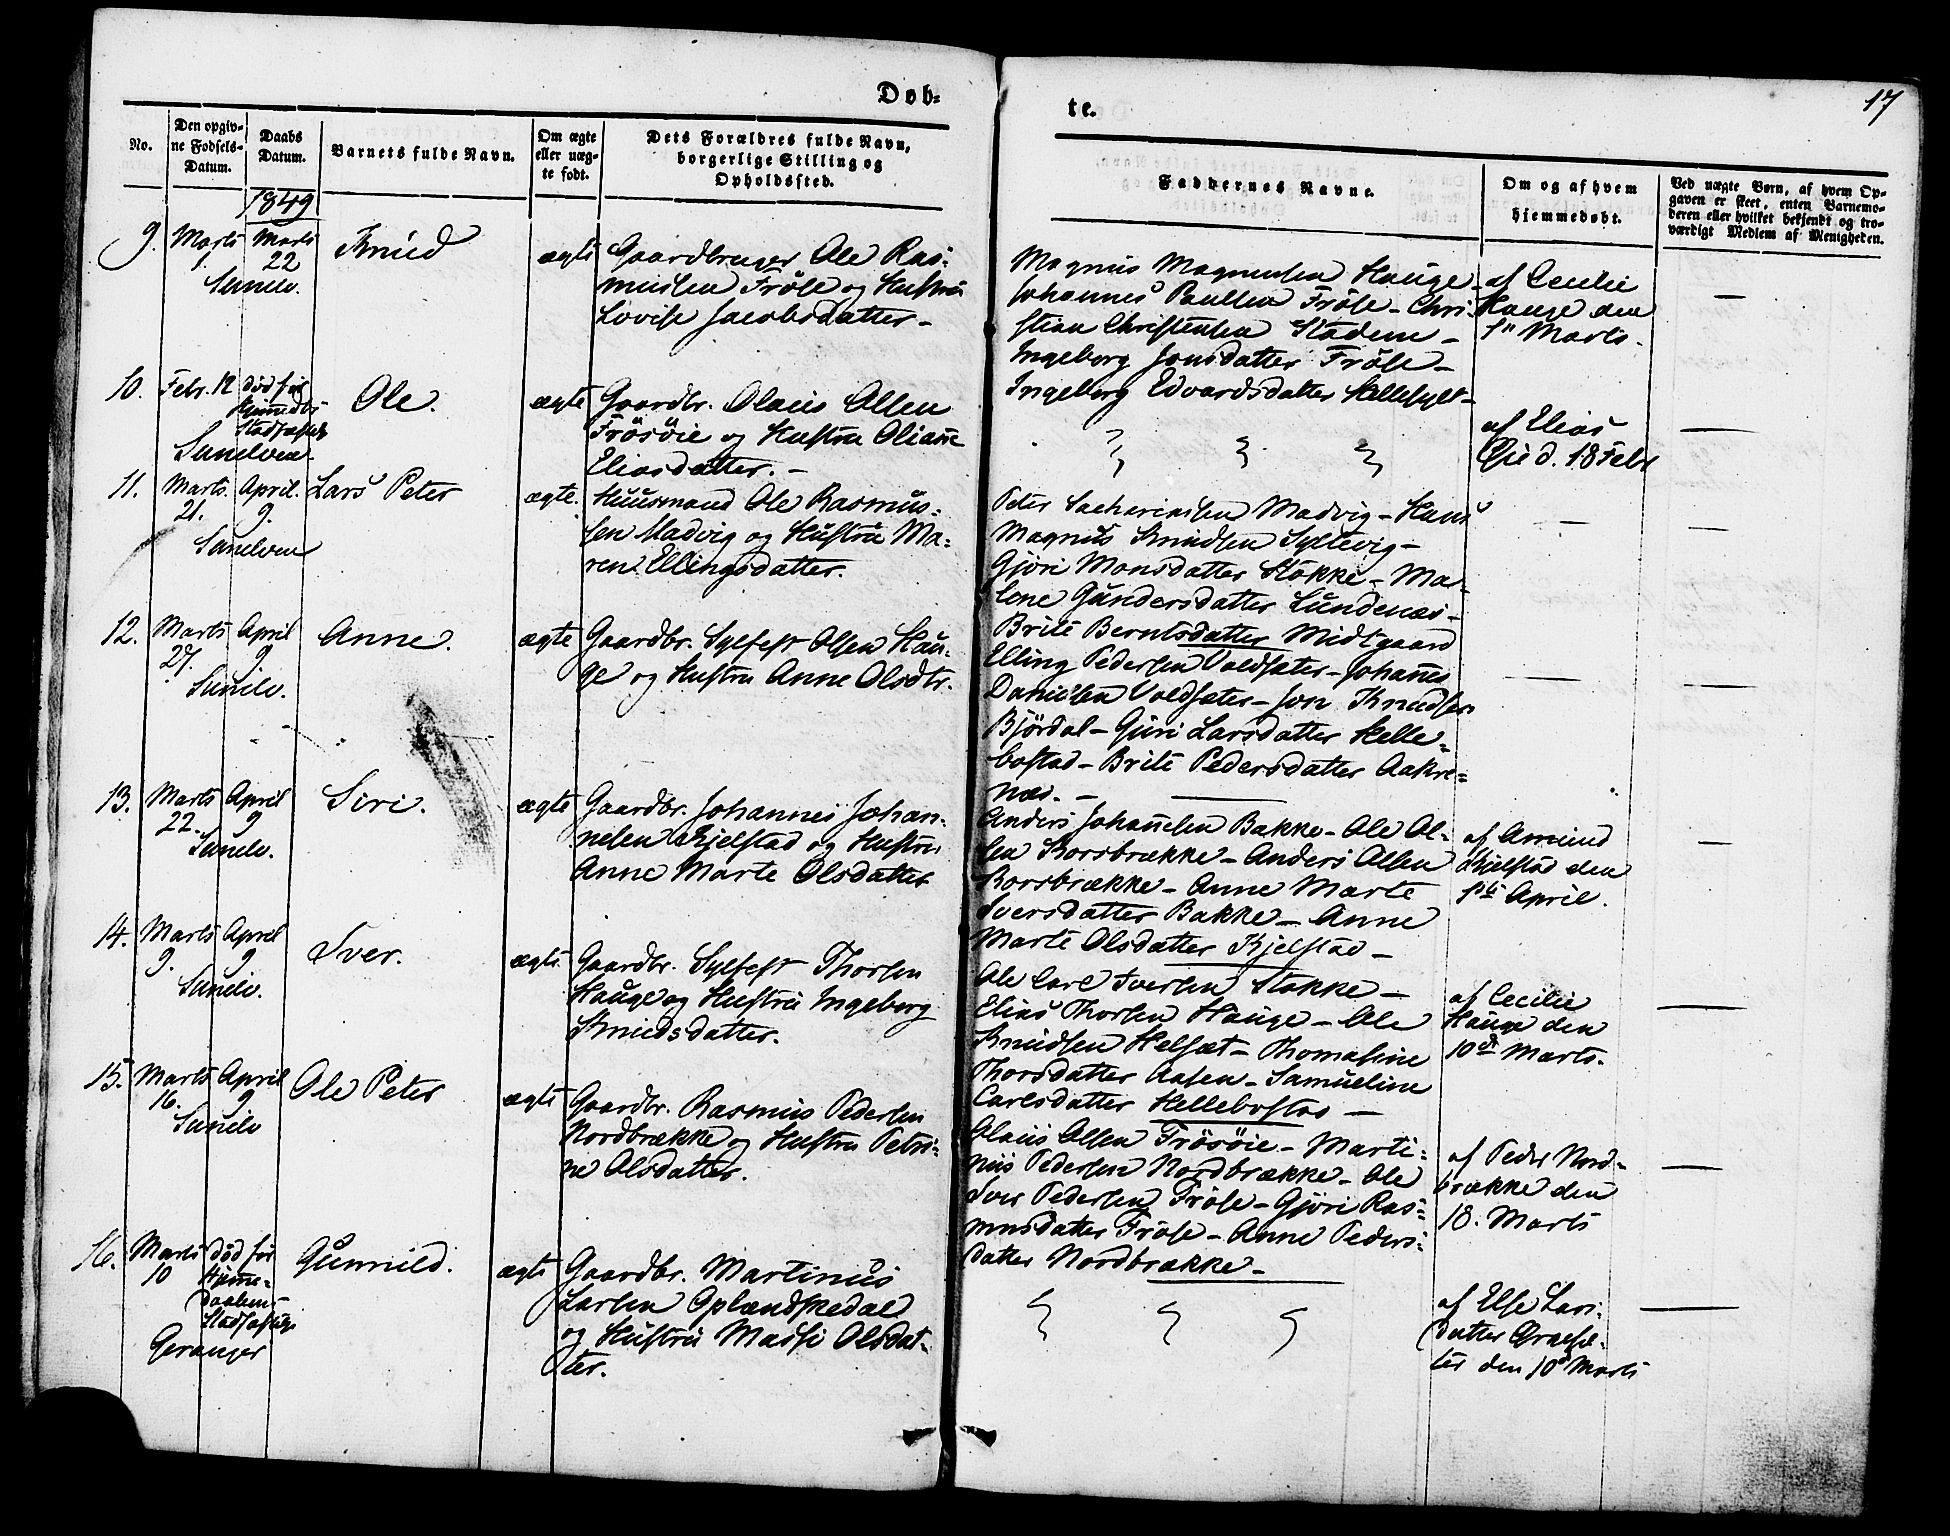 Døb-
te.
17
No.
Den opgiv-
ne Fødsels-
Datum.
Daabs
Datum.
Barnets fulde Navn.
Om ægte
eller uæg-
te født.
Dets Forældres fulde Navn,
borgerlige Stilling og
Opholdssted.
Faddernes Navne.
Om og af hvem
hjemmedøbt.
Ved uægte Børn, af hvem Op-
gaven er skeet, enten Barnemo-
deren eller hvilket bekjendt og tro-
værdigt Medlem af Menigheden.
1849
9. Marts
1.
Marts
22
Sunelv.
Knud
ægte
Gaardbruger Ole Ras-
mussen Fröse og Hustru
Lovise Jacobsdatter -
Magnus Magnussen Hauge -
Johannes Paulsen Fröse - Chri-
stian Christensen Stadem -
Ingeborg Jonsdatter Fröse -
Ingeborg Edvardsdatter Hellesylt -
af Cecilie
Hauge den
1ste Marts.
—
10. Febr. 12
død før
Hjemmedb.
Stadfæstels
Sunelven.
Ole.
ægte
Gaardbr. Olaus Olsen
Frösöie og Hustru Oliane
Eliasdatter. -
af Elias
Gie d. 18 Febr
—
11. Marts.
21.
April.
9.
Sunelven
Lars Peter
ægte.
Huusmand Ole Rasmus-
sen Madvig og Hustru Ma-
ren Ellingsdatter.
Peter Sachariassen Madvig - Hans
Magnus Knudsen Syltevig -
Gjöri Monsdatter Stokke - Ma-
lene Gundersdatter Lundenæs -
Brite Berntsdatter Midtgaard
—
—
12. Marts
27.
April
9.
Sunelv.
Anne.
ægte
Gaardbr. Sylfest Olsen Hau-
ge og Hustru Anne Olsdtr.
Elling Pedersen Voldsæter - Johannes
Danielsen Voldsæter - Jon Knudsen
Björdal - Guri Larsdatter Helle-
bostad - Brite Pedersdatter Aakre-
næs. -
—
—
13. Marts
22.
April
9
Sunelv.
Siri.
ægte
Gaardbr. Johannes Johan-
nesen Kjelstad og Hustru
Anne Marte Olsdatter
Anders Johannesen Bakke - Ole Ol-
sen Korsbrække - Anders Olsen
Korsbrække - Anne Marte
Iversdatter Bakke - Anne
Marte Olsdatter Kjelstad -
af Amund
Kjelstad den
1ste April.
—
14. Marts
9.
April
9
Sunelv.
Iver.
ægte
Gaardbr. Sylfest Thorsen
Hauge og Hustru Ingeborg
Knudsdatter.
Ole Carl Iversen Stokke -
Elias Thorsen Hauge - Ole
Knudsen Helsæt - Thomasine
Thorsdatter Aasen - Samueline
Carlsdatter Hellebostad -
af Cecilie
Hauge den
10de Marts.
—
15. Marts
16.
April
9
Sunelv
Ole Peter
ægte
Gaardbr. Rasmus Pedersen
Nordbrække og Hustru Petri-
ne Olsdatter.
Olaus Olsen Frösöie - Marti-
nus Pedersen Nordbrække - Ole
Iver Pedersen Fröse - Gjöri Ras-
musdatter Fröse - Anne Peders-
datter Nordbrække -
af Peder Nord-
brække den
18. Marts
—
16. Marts
10
død før
Hjemme-
daabens
Stadfæstelse
Geranger
Gunnild.
ægte
Gaardbr. Martinus
Larsen Oplændskedal
og Hustru Madsi Olsdat-
ter.
af Else Lars-
datter Græsæ-
ter den 10de Marts
—